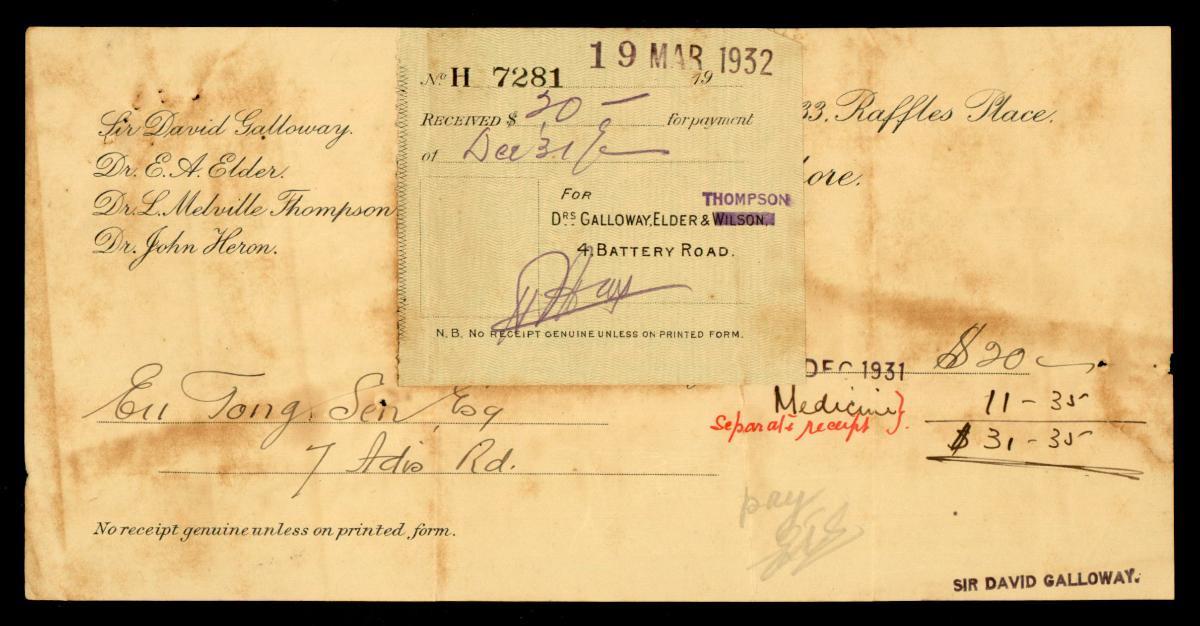 19 MAR 1932
No H 7281 19
RECEIVED $ 20 — for payment
of Dec 31
FOR
THOMPSON
DRS GALLOWAY, ELDER & WILSON,
4, BATTERY ROAD.
N.B. NO RECEIPT GENUINE UNLESS ON PRINTED FORM.
Sir David Galloway.
Dr. E. A. Elder.
Dr. L. Melville Thompson
Dr. John Heron.
33, Raffles Place.
ore.
Eu Tong Sen, Esq
7 Adis Rd.
DEC 1931 $ 20
Medicine } 11 - 35
Separate receipt
$ 31 - 35
pay
No receipt genuine unless on printed form.
SIR DAVID GALLOWAY.